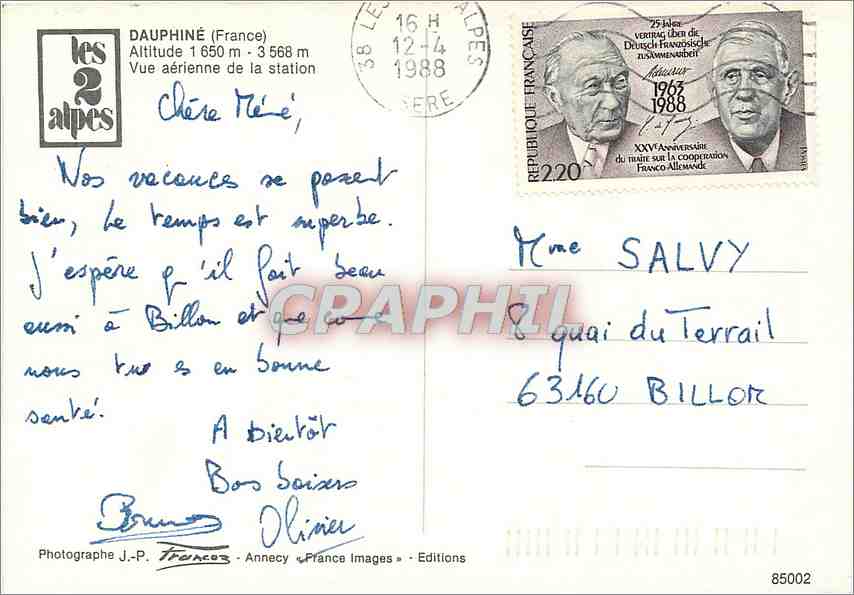 les
2
alpes
DAUPHINÉ (France)
Altitude 1 650 m - 3 568 m
Vue aérienne de la station
38 LES ALPES
16 H
12-4
1988
ISERE
RÉPUBLIQUE FRANÇAISE
25 JAHRE
VERTRAG ÜBER DIE
DEUTSCH-FRANZÖSISCHE
ZUSAMMENARBEIT
1963
1988
XXVe ANNIVERSAIRE
DU TRAITE SUR LA COOPERATION
FRANCO-ALLEMANDE
2,20
Chère Méné,
Nos vacances se passent
bien, Le temps est superbe.
J'espère q'il fait beau
aussi à Billom et que comme
nous tu es en bonne
santé.
A bientôt
Bos baisers
Bruno Olivier
Mme SALVY
8 quai du Terrail
63160 BILLOM
CPAPHIL
Photographe J.-P. - Annecy « France Images » - Editions
85002